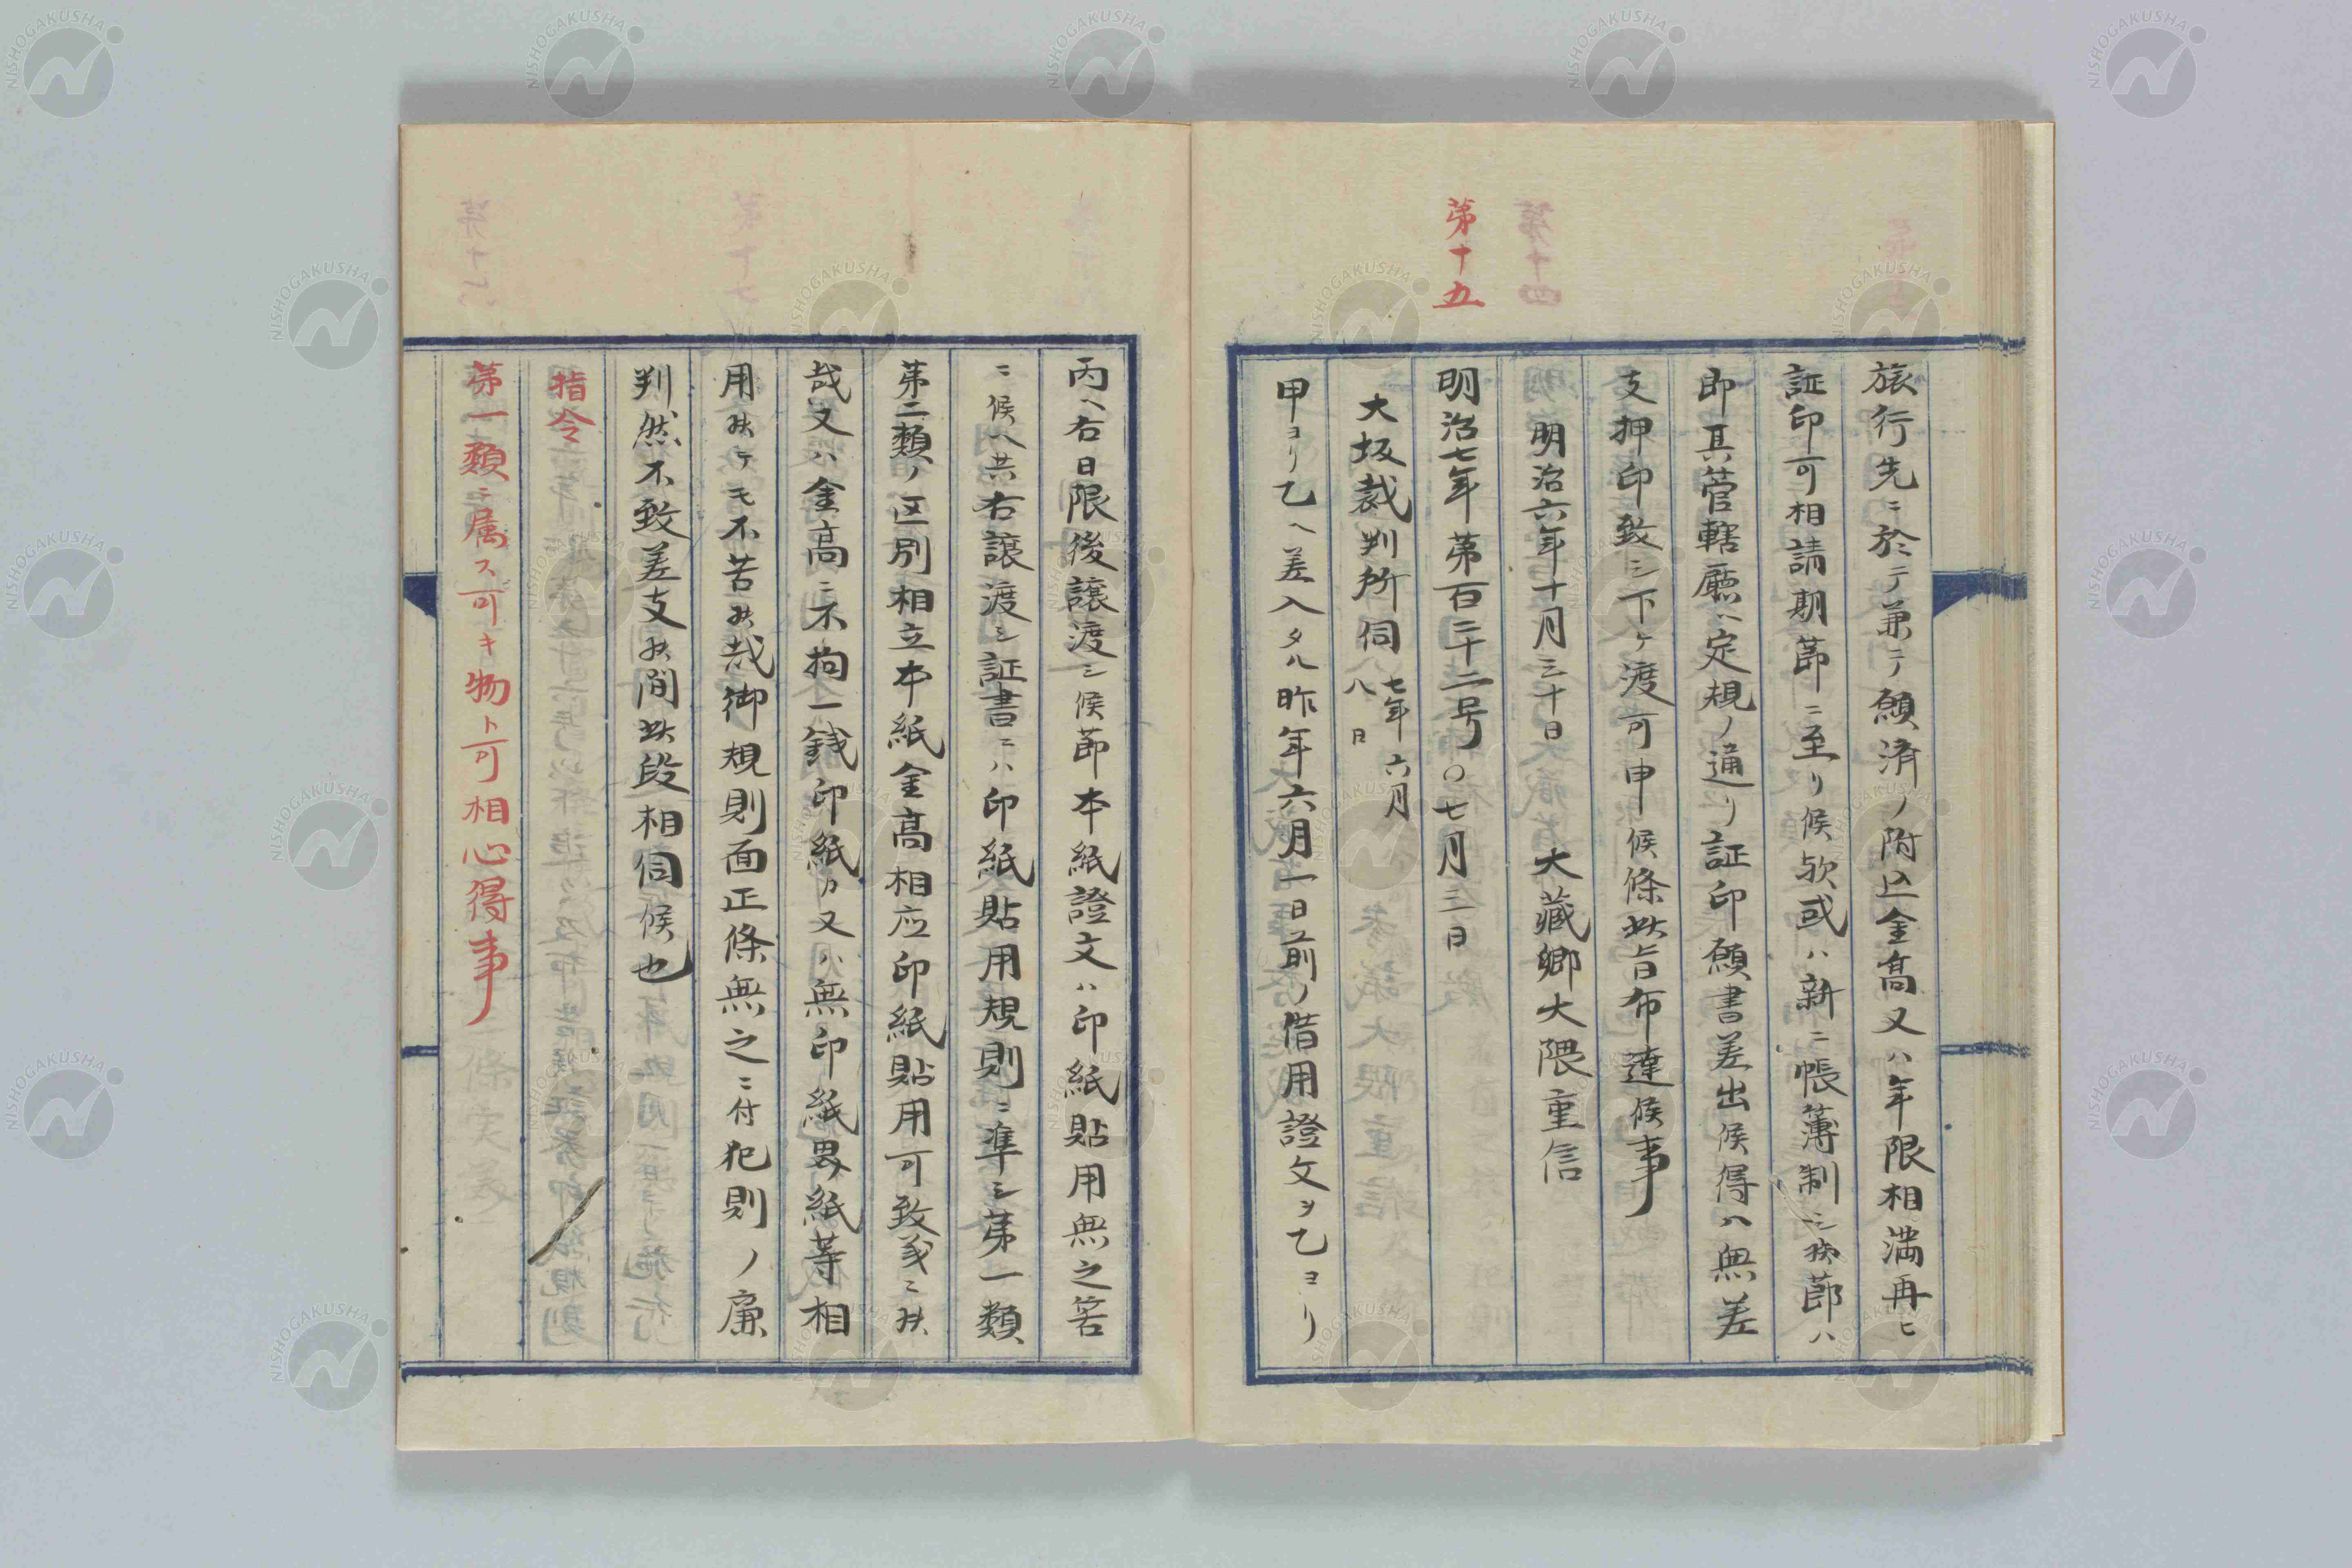 旅行先ニ於テ兼テ願済ノ附込金高又ハ年限相満再ヒ
証印可相請期節ニ至リ候欤或ハ新ニ帳簿制シ候節ハ
即其管轄廳ハ定規ノ通リ証印願書差出候得ハ無差
支押印致シ下ケ渡可申候條此旨布達候事
明治六年十月三十日 大藏卿大隈重信
第十五
明治七年第百二十二号○七月三日
大坂裁判所伺 七年六月八日
甲ヨリ乙ヘ差入タル昨年六月一日前ノ借用證文ヲ乙ヨリ
丙ヘ右日限後譲渡シ候節本紙證文ハ印紙貼用無之筈
ニ候ヘ共右譲渡シ証書ニハ印紙貼用規則ニ準シ第一類
第二類ノ区別相立本紙金高相応印紙貼用可致義ニ候
哉又ハ金高ニ不拘一銭印紙カ又ハ無印紙界紙等相
用候テモ不苦候哉御規則面正條無之ニ付犯則ノ廉
判然不致差支候間此段相伺候也
指令
第一類ニ属ス可キ物ト可相心得事
NISHOGAKUSHA